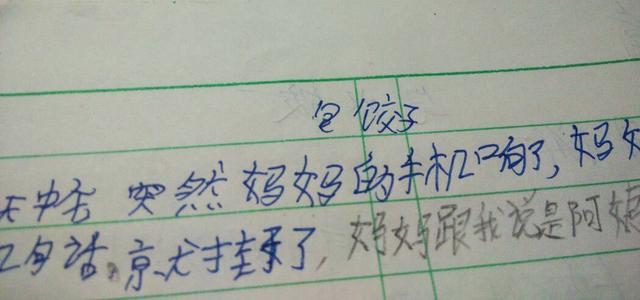 包饺子
天中午 突然妈妈的手机响了,妈妈
句话,就挂了,妈妈跟我说是阿姨